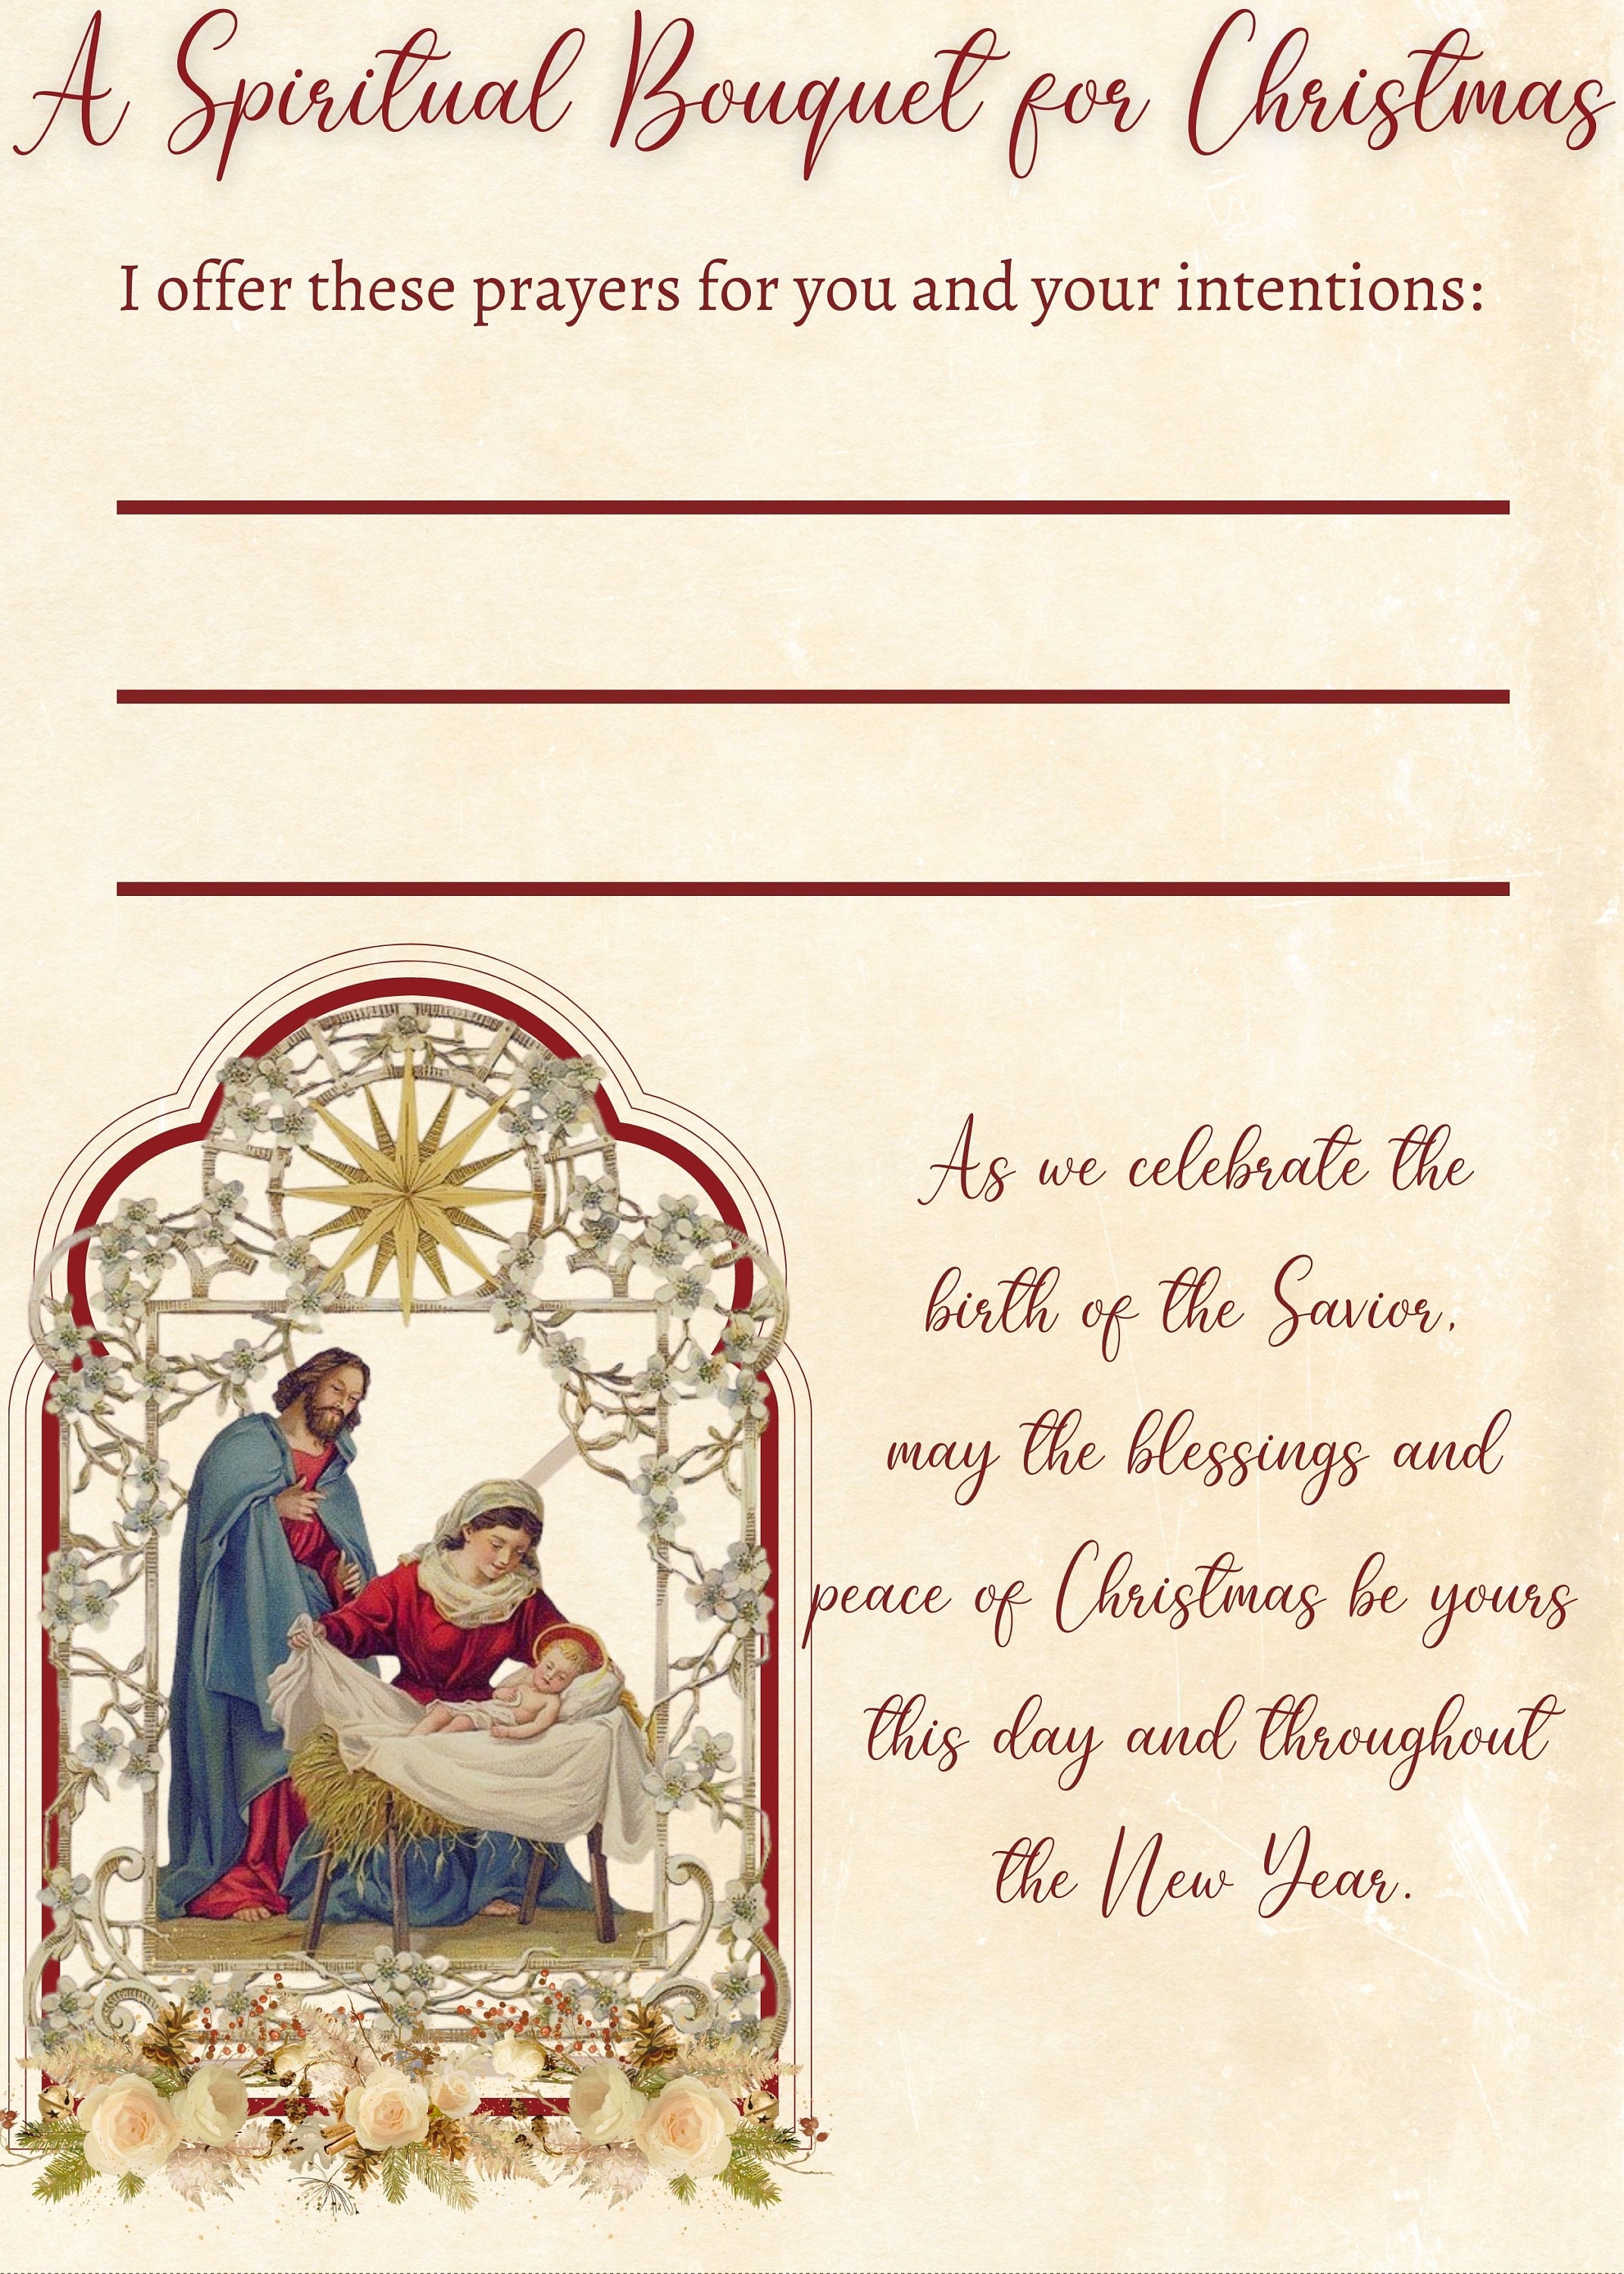 A Spiritual Bouquet for Christmas
I offer these prayers for you and your intentions:
As we celebrate the
birth of the Savior,
may the blessings and
peace of Christmas be yours
this day and throughout
the New Year.